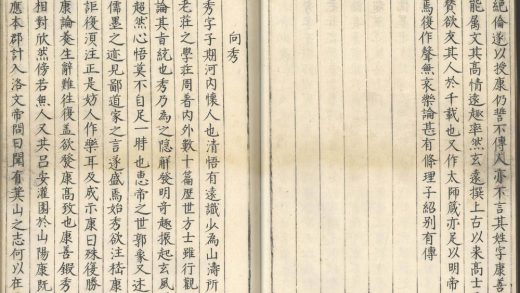 絶倫遂以授康仍誓不傳人亦不言其姓字康善
能屬文其高情遠趣率然玄遠撰上古以來高士
賛欲友其人於千載也又作太師箴亦足以明帝
焉復作聲無哀樂論甚有條理子紹別有傳
向秀
秀字子期河内懷人也清悟有遠識少為山濤所
老莊之學莊周着内外數十篇歴世方士雖有觀
論其旨統也秀乃為之隱解發明奇趣振起玄風
超然心悟莫不自足一時也惠帝之世郭象又述
儒墨之迹見鄙道家之言遂盛焉始秀欲注嵇康
詎復須注正是妨人作樂耳及成示康曰殊復勝
康論養生辭難往復盖欲發康髙致也康善鍜秀
相對欣然傍若無人又共吕安灌園於山陽康既
應本郡計入洛文帝問曰聞有箕山之志何以在